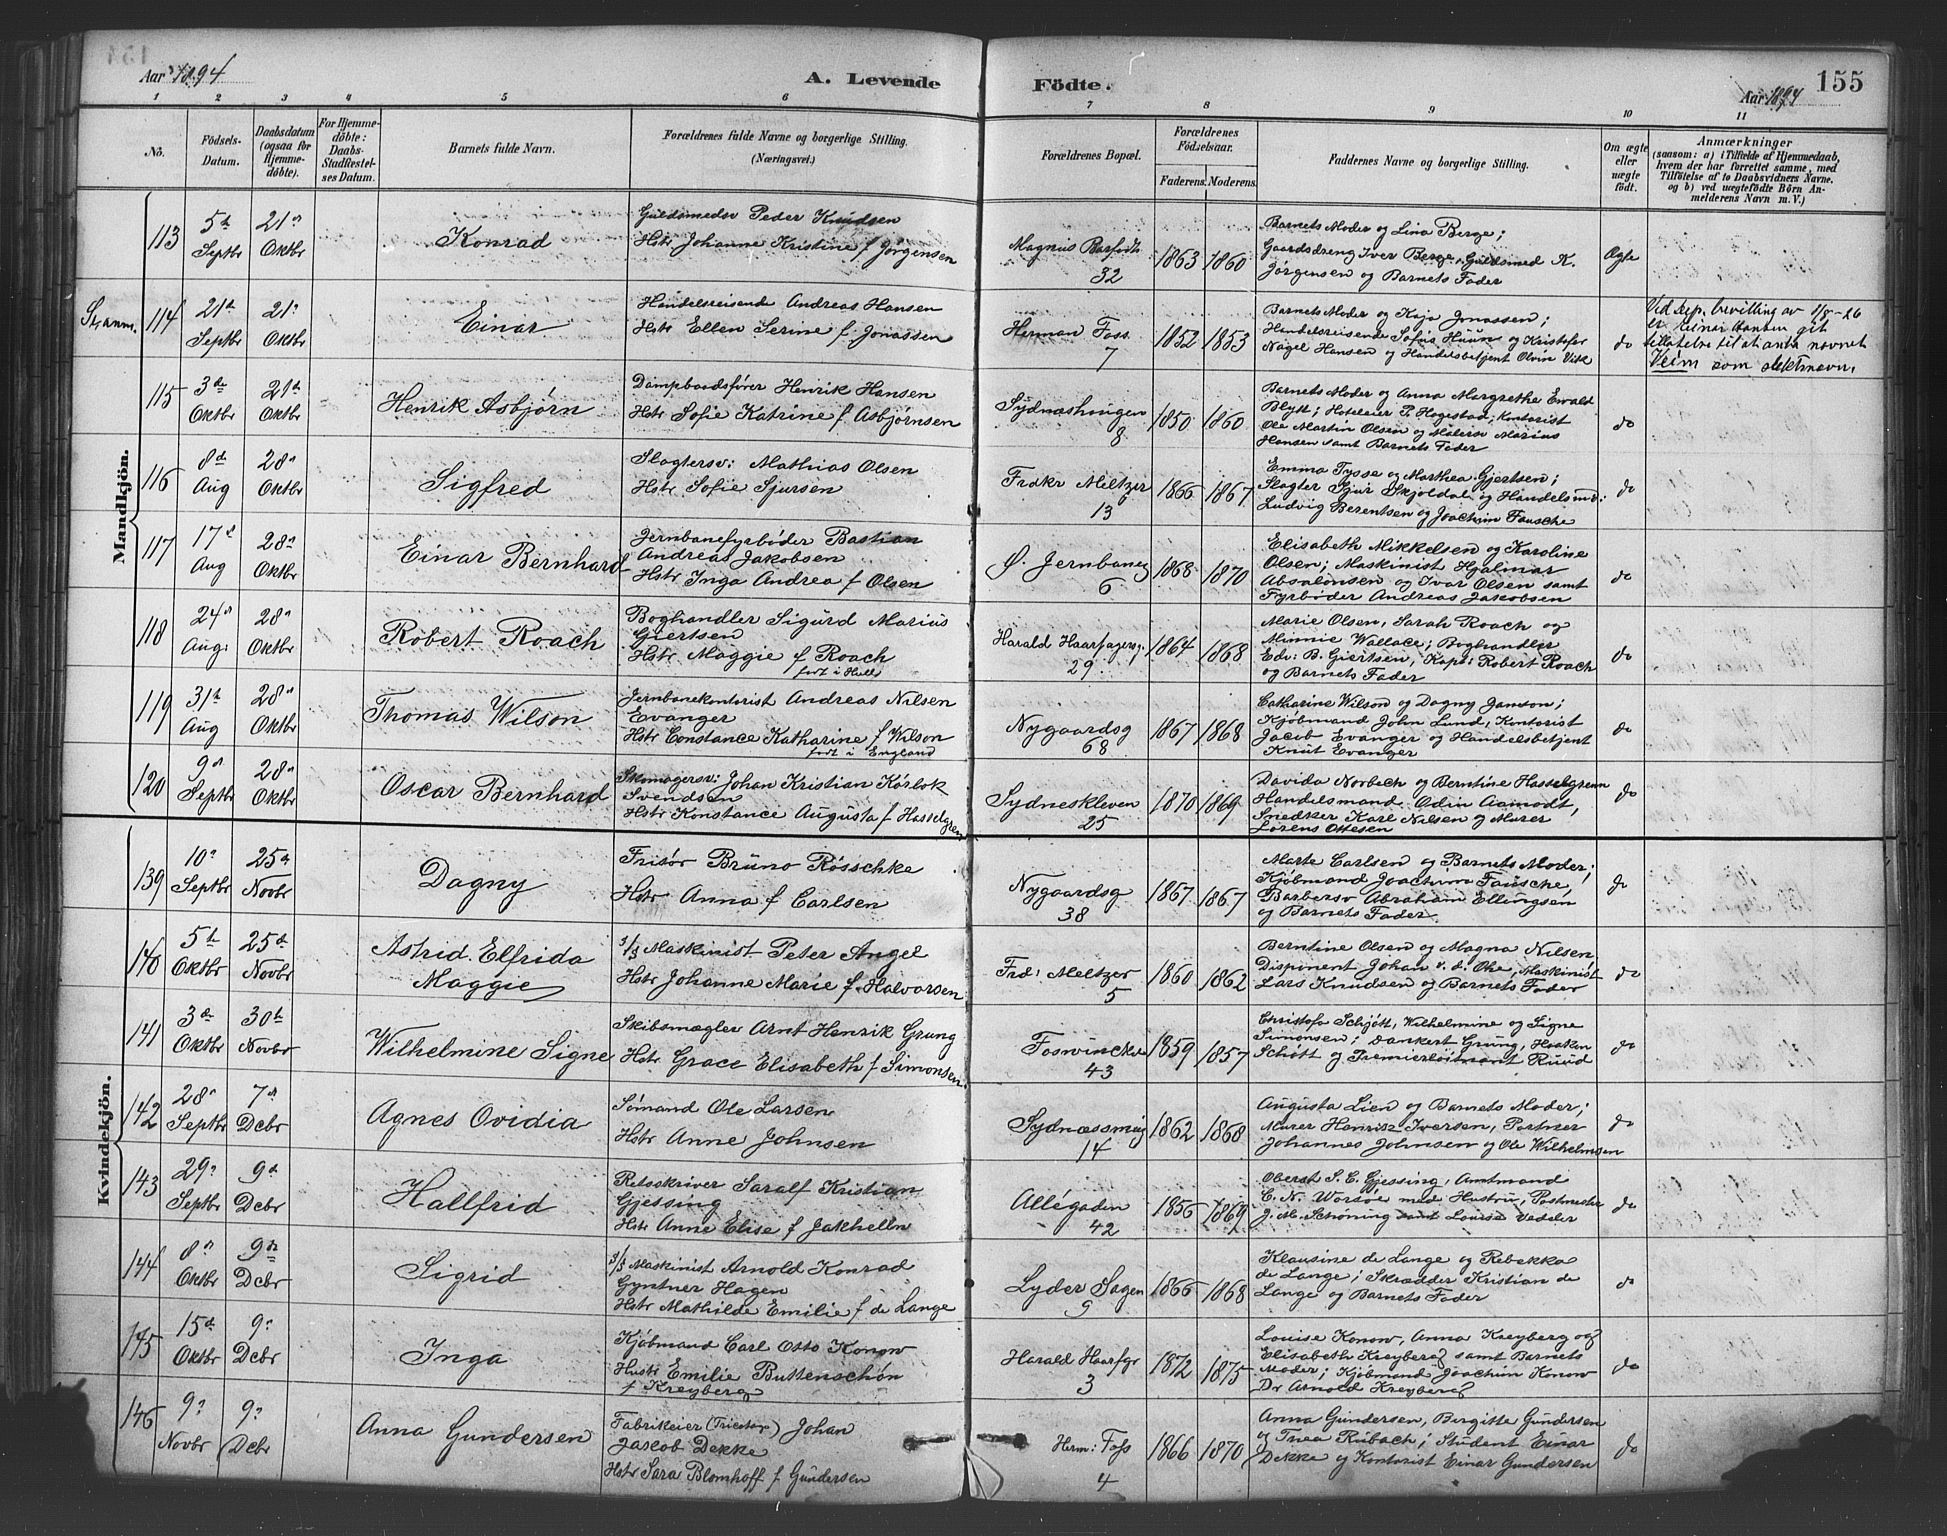 Aar 1894 A. Levende Födte. Aar 1894 155
1 2 3 4 5 6 7 8 9 10 11
No.
Födsels-Datum.
Daabsdatum (ogsaa for Hjemme-döbte).
For Hjemme-döbte: Daabs-Stadfæstel-ses Datum.
Barnets fulde Navn.
Forældrenes fulde Navne og borgerlige Stilling. (Næringsvei.)
Forældrenes Bopæl.
Forældrenes Födselsaar.
Faderens. Moderens.
Faddernes Navne og borgerlige Stilling.
Om ægte eller uægte födt.
Anmærkninger
(saasom: a) i Tilfælde af Hjemmedaab,
hvem der har forrettet samme, med
Tilföielse af to Daabsvidners Navne.
og b) ved uægtefödte Börn An-
melderens Navn m. V.)
Mandkjön.
113 5th Septbr 21d Oktbr Konrad
Guldsmedsv Peder Knudsen
Hstr Johanne Kristine f Jørgensen
Magnus Barfodts 32 1863 1860
Barnets Moder og Lina Berge;
Gaardsdreng Iver Berge, Guldsmed K.
Jørgensen og Barnets Fader
Ægte
114 21d Septbr 21d Oktbr Einar
Handelsreisende Andreas Hansen
Hstr Ellen Serine f. Jonassen
Herman Foss 7 1852 1853
Barnets Moder og Kaja Jonassen;
Handelsreisende Sofus Huun og Kristofer
Nagel Hansen og Handelsbetjent Olvin Vik
do
Ved dep. bevilling av 11/8-26
er Einar Hansen git
tillatelse til at anta navnet
Veim som slektsnavn.
115 3de Oktbr 21d Oktbr Henrik Asbjørn
Dampbaadsfører Henrik Hansen
Hstr Sofie Katrine f Asbjørnsen
Sydnæshougen 8 1850 1860
Barnets Moder og Anna Margrethe Ewald
Blytt; Hoteleier P. Hogestad, Kontorist
Ole Martin Olsen og Malersv Marius
Hansen samt Barnets Fader
do
116 8d Aug 28d Oktbr Sigfred
Slagtersv: Mathias Olsen
Hstr Sofie Sjursen
Fredkr Meltzer 13 1866 1867
Emma Tysse og Marthea Gjertsen;
Slagter Sjur Skjoldal og Handelsmd:
Ludvig Berentsen og Joachim Fausche
do
117 17d Aug 28d Oktbr Einar Bernhard
Jernbanefyrbøder Bastian
Andreas Jakobsen
Hstr Inga Andrea f Olsen
Ø. Jernbaneg 6 1868 1870
Elisabeth Mikkelsen og Karoline
Olsen; Maskinist Hjalmar
Absalonsen og Ivar Olsen samt
Fyrbøder Andreas Jakobsen
do
118 24d Aug: 28d Oktbr Robert Roach
Boghandler Sigurd Marius
Giertsen
Hstr Maggie f Roach
født i Hull
Harald Haarfagersg. 29 1864 1868
Marie Olsen, Sarah Roach og
Minnie Wallace; Boghandler
Edv: B. Giertsen, Kapt: Robert Roach
og Barnets Fader
do
119 31th Aug 28d Oktbr Thomas Wilson
Jernbanekontorist Andreas Nilsen
Evanger
Hstr Constance Katharine f Wilson
født i England
Nygaardsg 68 1867 1868
Catharine Wilson og Dagny Janson;
Kjøbmand John Lund, Kontorist
Jacob Evanger og Handelsbetjent
Knut Evanger
do
120 9d Septbr 28d Oktbr Oscar Bernhard
Skomagersv: Johan Kristian Körbok
Svendsen
Hstr Konstance Augusta f Hasselgren
Sydneskleven 25 1870 1869
Davida Norbech og Berntine Hasselgrenn
Handelsmand Odin Aamodt,
Snedker Karl Nilsen og Murer
Lorens Ottesen
do
Kvindekjön.
139 10d Septbr 25d Novbr Dagny
Frisør Bruno Röschke
Hstr Anna f Carlsen
Nygaardsg 38 1867 1867
Marte Carlsen og Barnets Moder;
Kjøbmand Joachim Fausche,
Barbersv Abraham Ellingsen
og Barnets Fader
do
140 5th Oktbr 25d Novbr Astrid Elfrida
Maggie
D/S Maskinist Peter Angel
Hstr Johanne Marie f. Halvorsen
Frd: Meltzer 5 1860 1862
Berntine Olsen og Magna Nilsen,
Disponent Johan v. d. Ohe, Maskinist
Lars Knudsen og Barnets Fader
do
141 3d Oktbr 30th Novbr Wilhelmine Signe
Skibsmægler Arnt Henrik Grung
Hstr Grace Elisabeth f Simonsen
Foswinckels 43 1859 1857
Christofa Schjøtt, Wilhelmine og Signe
Simonsen; Dankert Grung, Haaken
Schøtt og Premierløitnant Ruud
do
142 28d Septbr 7d Dcbr Agnes Ovidia
Sømand Ole Larsen
Hstr Anne Johnsen
Sydnæssmug 14 1862 1868
Augusta Lien og Barnets Moder;
Murer Henrik Iversen, Portner
Johannes Johnsen og Ole Wilhelmsen
do
143 29d Septbr 9d Dcbr Hallfrid
Retsskriver Saralf Kristian
Gjessing
Hstr Anne Elise f Jakhelln
Allégaden 42 1856 1869
Oberst S. C. Gjessing, Amtmand
C. N. Worsøe med Hustru, Postmester
J. M. Schøning samt Louise Vedeler
do
144 8d Oktbr 9d Dcbr Sigrid
D/S Maskinist Arnold Konrad
Gyntner Hagen
Hstr Mathilde Emilie f de Lange
Lyder Sagen 9 1866 1868
Klausine de Lange og Rebekka
de Lange; Skrædder Kristian de
Lange og Barnets Fader
do
145 15d Oktbr 9d Dcbr Inga
Kjøbmand Carl Otto Konow
Hustr Emilie Buttenschön
f Kreyberg
Harald Haarfgr 3 1872 1875
Louise Konow, Anna Kreyberg og
Elisabeth Kreyberg samt Barnets
Moder; Kjøbmand Joachim Konow
Dr Arnold Kreyberg
do
146 9d Novbr 9d Dcbr Anna Gundersen
Fabrikeier (Tricotage) Johan
Jascob Dekke
Hstr Sara Blomhoff f Gundersen
Herm: Foss 4 1866 1870
Anna Gundersen, Birgitte Gundersen
og Thea Rubach; Student Einar
Dekke og Kontorist Einar Gundersen
do